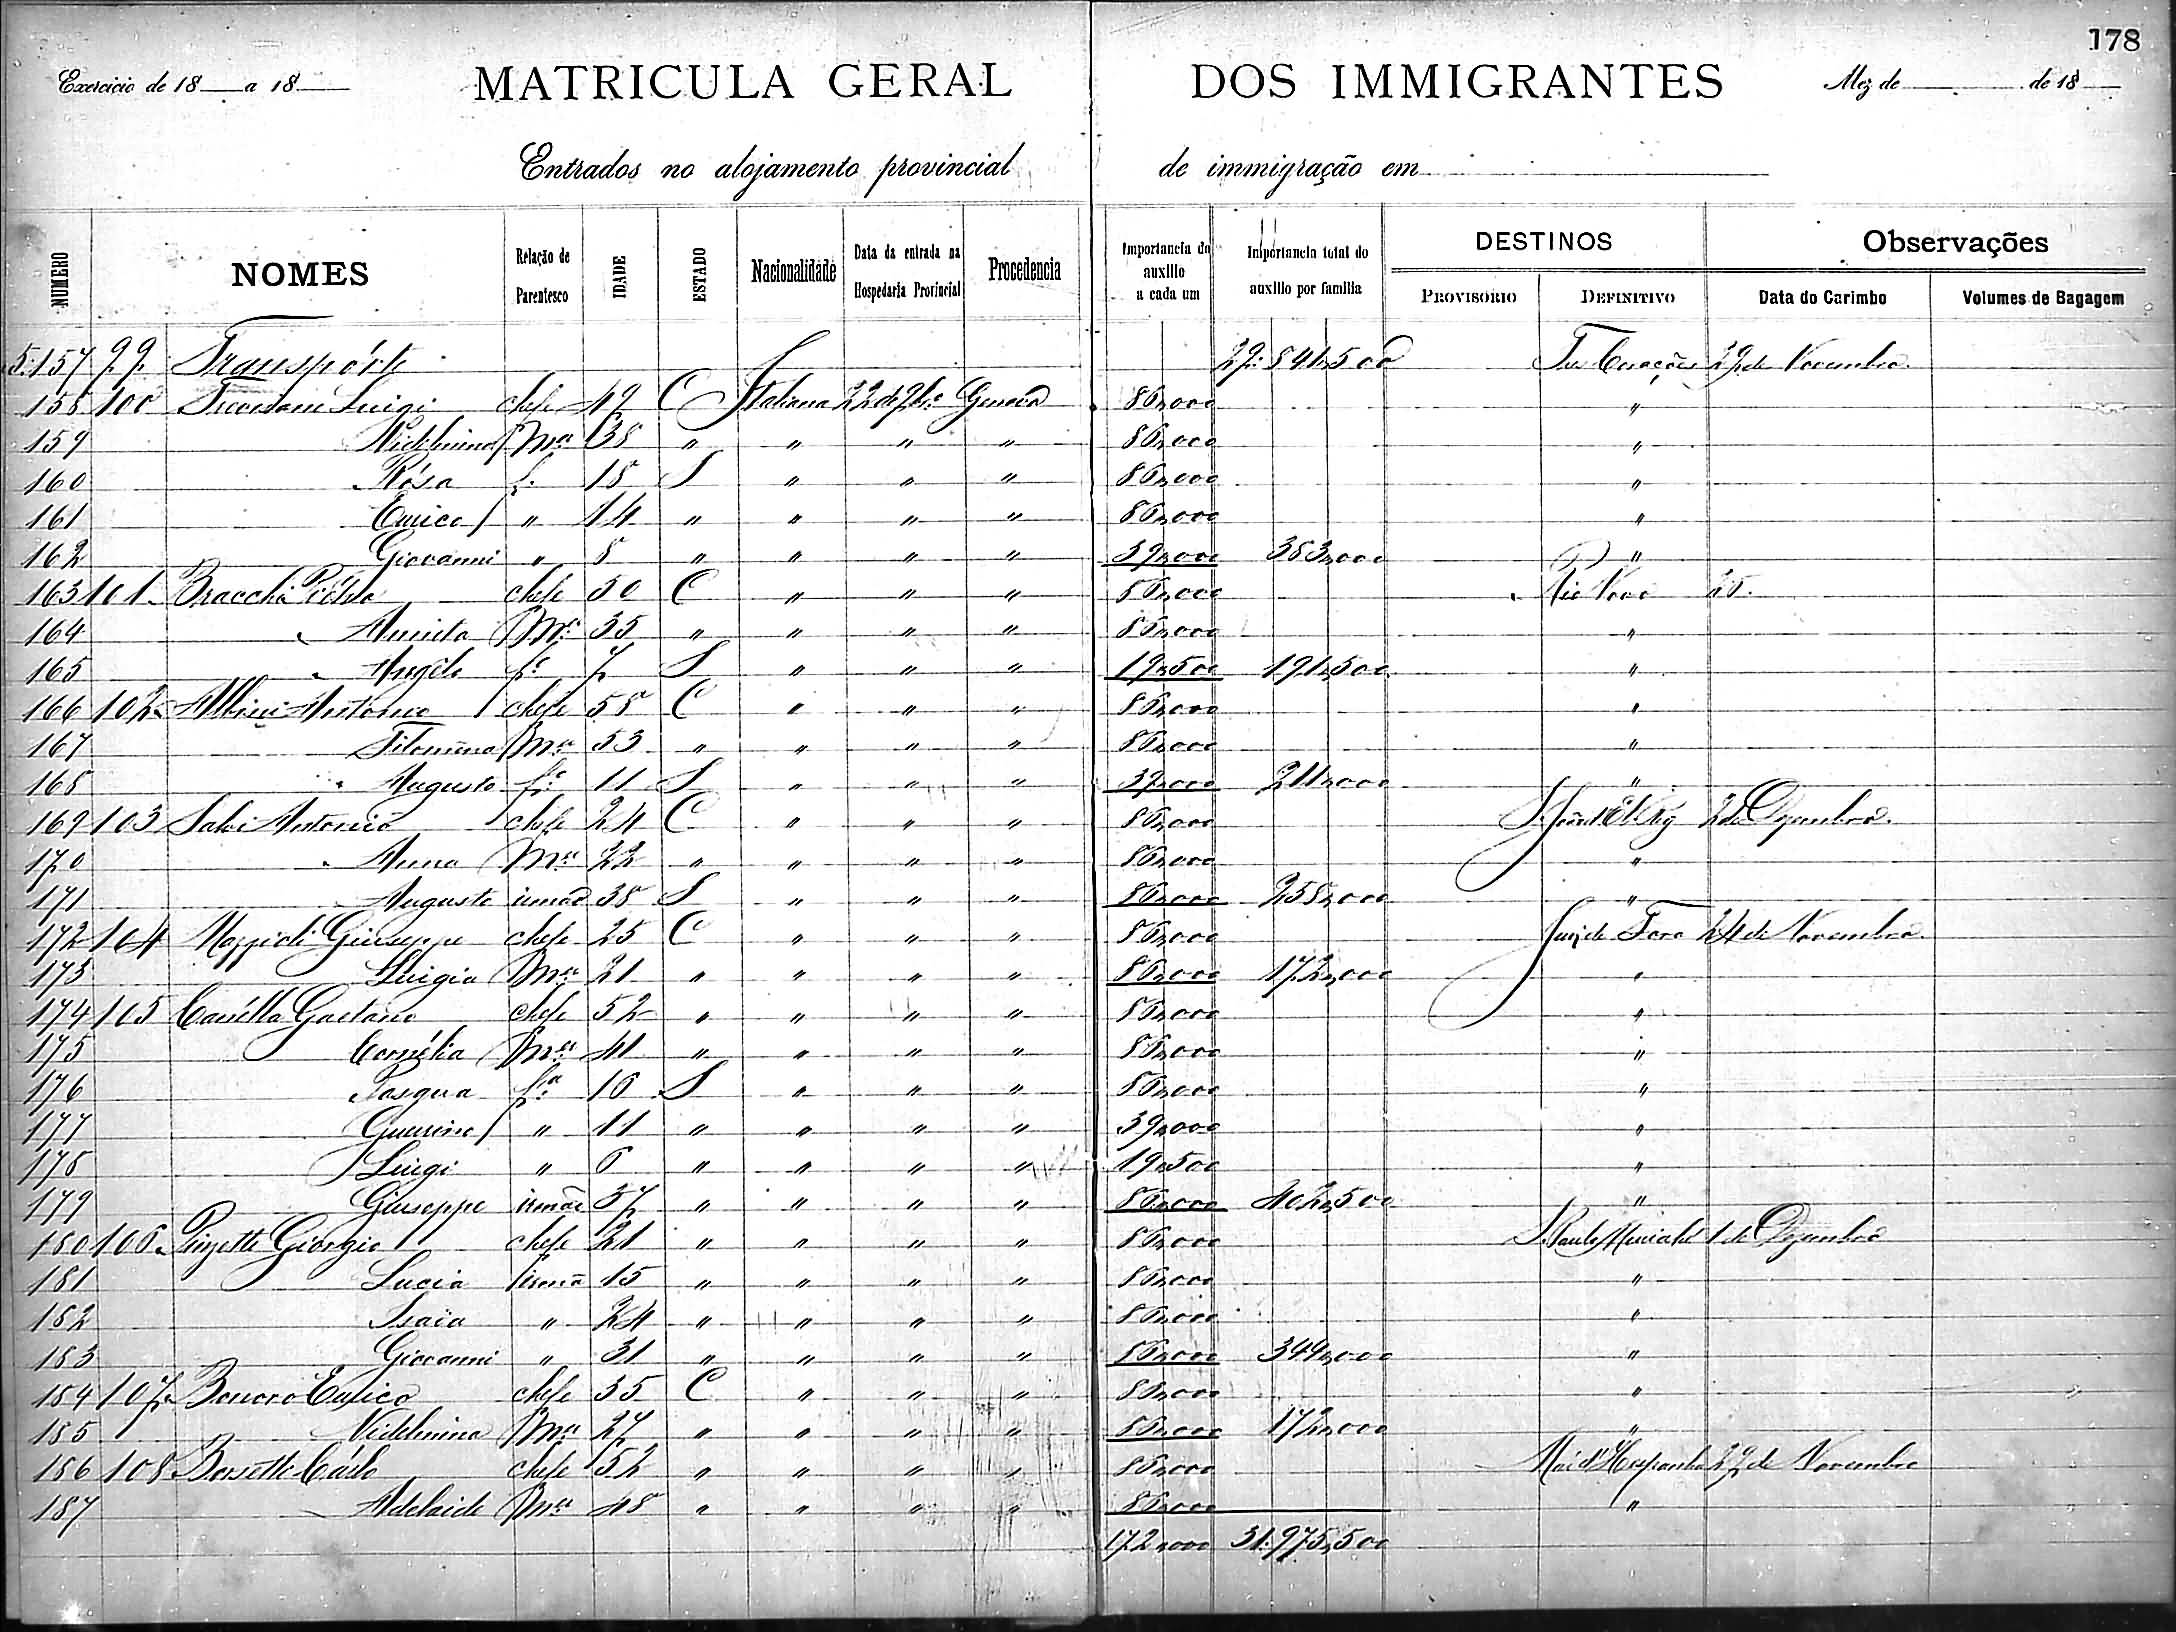 178
Exercicio de 18 a 18 MATRICULA GERAL DOS IMMIGRANTES Mez de de 18
Entrados no alojamento provincial de immigração em
NUMERO NOMES Relação de Parentesco IDADE ESTADO Nacionalidade Data da entrada na Hospedaria Provincial Procedencia Importancia do auxilio a cada um Importancia total do auxilio por familia DESTINOS Observações
PROVISORIO DEFINITIVO Data do Carimbo Volumes de Bagagem
5.157 99 Transpórte 29:841,500 Tres Corações 29 de Novembro
158 100 Luigi chefe 49 C Italiana 22 de 9bro Genova 86,000 "
159 Ma 38 " " " " 86,000 "
160 Rósa f. 18 S " " " 86,000 "
161 Enrico " 14 " " " " 86,000 "
162 Giovanni " 8 " " " " 39,000 383,000 "
163 101 Bracchi Piétro chefe 50 C " " " 86,000 Rio Novo 25
164 Annita Ma 35 " " " " 86,000 "
165 Angélo fo 7 S " " " 19,500 191,500 "
166 102 Albini Antonio chefe 58 C " " " 86,000 "
167 Filomena Ma 53 " " " " 86,000 "
168 Augusto fo 11 S " " " 39,000 211,000 "
169 103 Salvi Antonio chefe 24 C " " " 86,000 S. João d'El Rey 2 de Dezembro
170 Anna Ma 22 " " " " 86,000 "
171 Augusto irmão 38 S " " " 86,000 258,000 "
172 104 Giuseppe chefe 25 C " " " 86,000 Juiz de Fora 24 de Novembro
173 Luigia Ma 21 " " " " 86,000 172,000 "
174 105 Gaetano chefe 52 " " " " 86,000 "
175 Cornélia Ma 41 " " " " 86,000 "
176 Pasqua fa 16 S " " " 86,000 "
177 Guerino " 11 " " " " 39,000 "
178 Luigi " 6 " " " " 19,500 "
179 Giuseppe irmão 37 " " " " 86,000 402,500 "
180 106 Pinzetti Giorgio chefe 21 " " " " 86,000 S. Paulo Muriahé 1 de Dezembro
181 Lucia irmã 15 " " " " 86,000 "
182 Isaia " 24 " " " " 86,000 "
183 Giovanni " 31 " " " " 86,000 344,000 "
184 107 Bonoro Enrico chefe 35 C " " " 86,000 "
185 Ma 27 " " " " 86,000 172,000 "
186 108 Borsetti Cárlo chefe 52 " " " " 86,000 Mar d'Hespanha 29 de Novembro
187 Adelaide Ma 48 " " " " 86,000 "
172,000 31.975,500